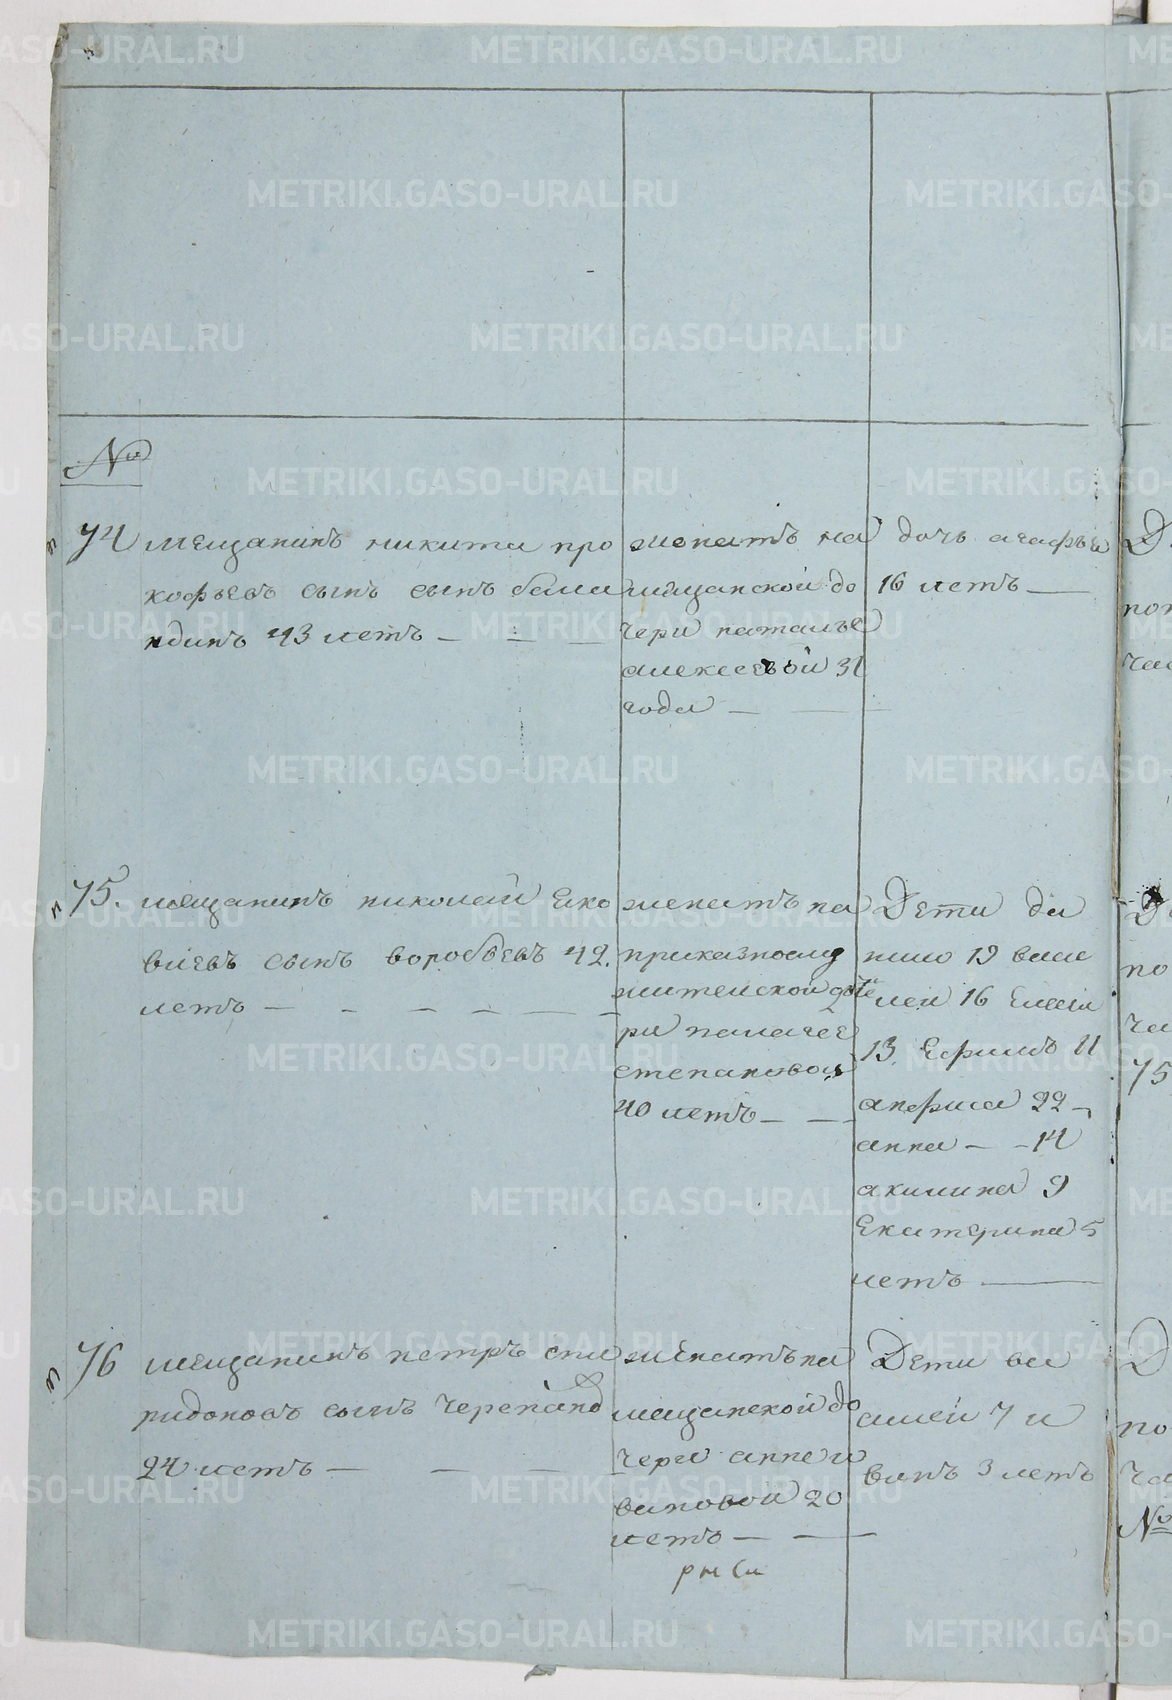 №
74 мещанинъ никита про
кофьевъ сынъ сынъ бала
ндинъ 43 летъ
женатъ на
мещанской до
чери наталье
алексеевой 31
года
дочь агафья
16 летъ
75. мещанинъ николай яко
влевъ сынъ воробьевъ 42
летъ
женатъ на
приказнослу
жительской доче
ри палагее
степановой
40 летъ
Дети да
нило 19 васи
лей 16 Елесей
13 Ефимъ 11
анфиса 22
анна 14
акилина 9
Екатерина 5
летъ
76 мещанинъ петръ спи
ридоновъ сынъ Черепанов
24 летъ
женатъ на
мещанской до
чери анне и
вановой 20
летъ
Дети ва
силей 7 и
ванъ 3 летъ
Д
пол
час
по
ча
75
Д
по
ча
№
METRIKI.GASO-URAL.RU